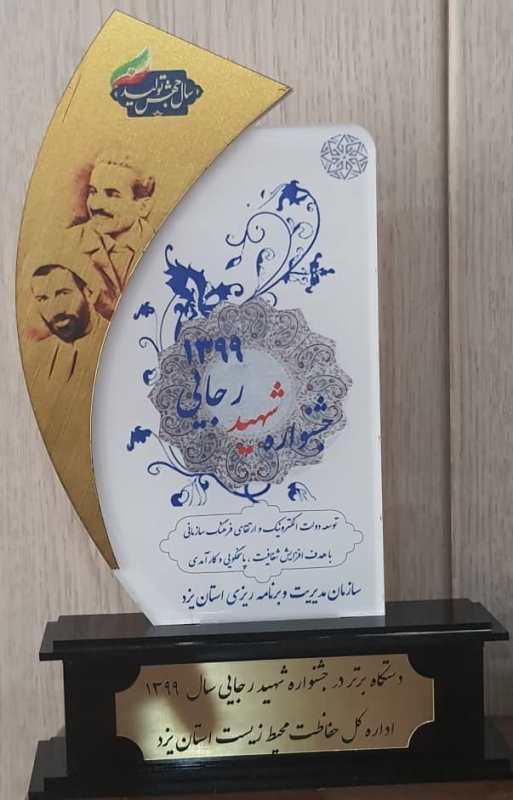 سال جهش تولید
۱۳۹۹
جشنواره شهید رجایی
توسعه دولت الکترونیک و ارتقای فرهنگ سازمانی
با هدف افزایش شفافیت ، پاسخگویی و کارآمدی
سازمان مدیریت و برنامه ریزی استان یزد
دستگاه برتر در جشنواره شهید رجایی سال ۱۳۹۹
اداره کل حفاظت محیط زیست استان یزد